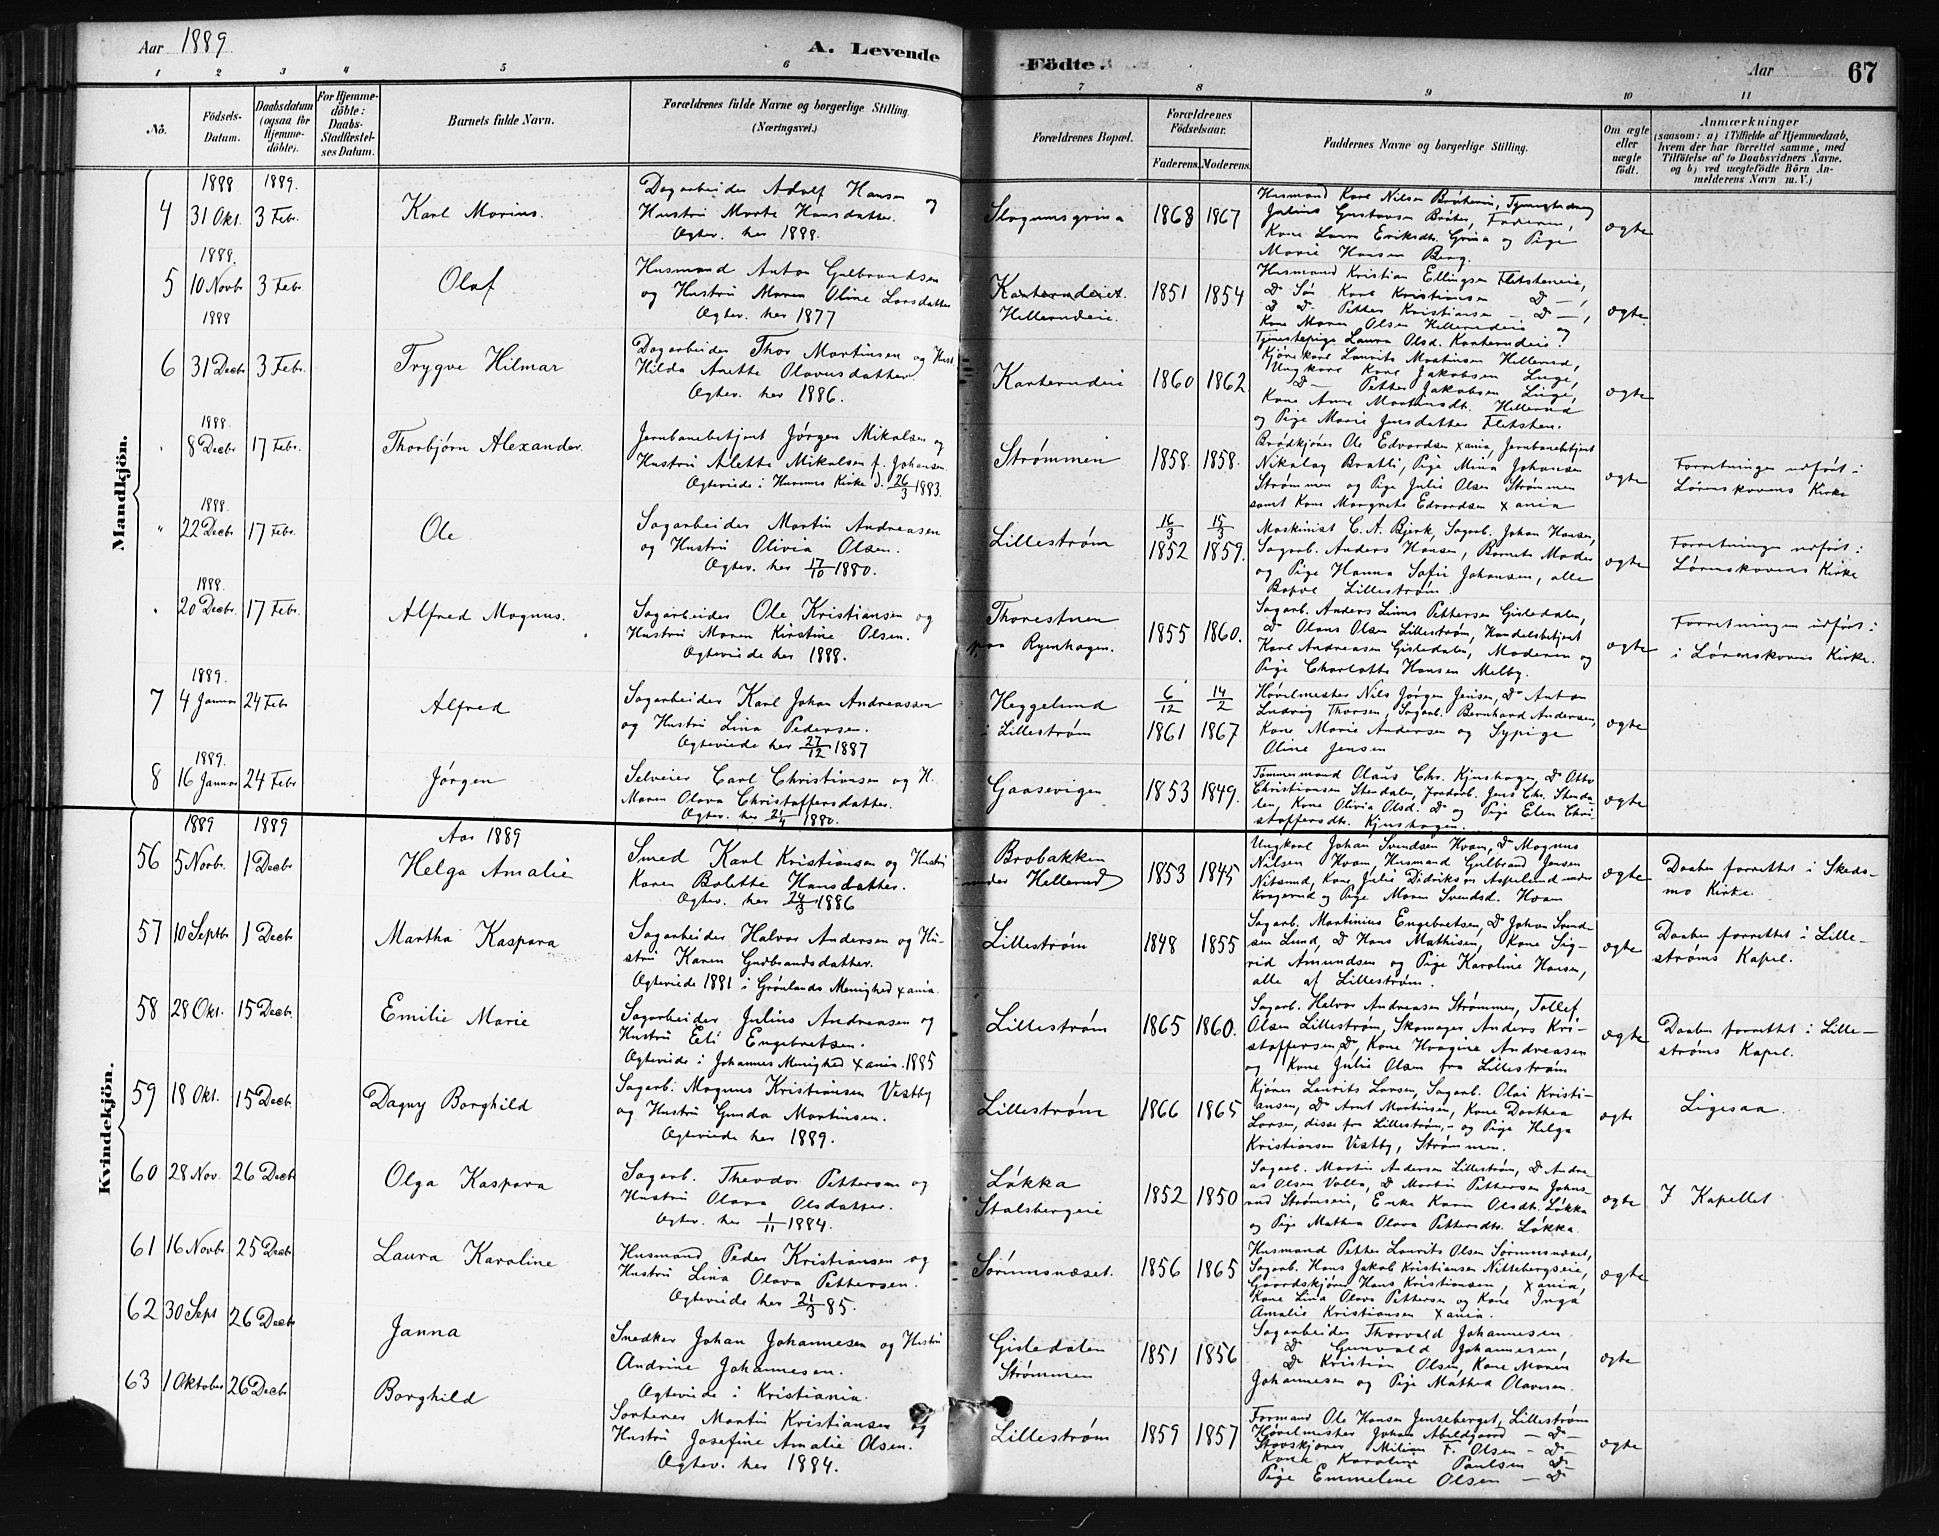 Aar 1889
A. Levende
Födte.
Aar
67
1 2 3 4 5 6 7 8 9 10 11
No.
Födsels-
Datum.
Daabsdatum
(ogsaa for
Hjemme-
döbte).
For Hjemme-
döbte:
Daabs-
Stadfæstel-
ses Datum.
Barnets fulde Navn.
Forældrenes fulde Navne og borgerlige Stilling.
(Næringsvei.)
Forældrenes Bopæl.
Forældrenes
Födselsaar.
Faderens. Moderens.
Faddernes Navne og borgerlige Stilling.
Om ægte
eller
uægte
födt.
Anmærkninger
(saasom: a) i Tilfælde af Hjemmedaab,
hvem der har forrettet samme, med
Tilföielse af to Daabsvidners Navne,
og b) ved uægtefödte Börn An-
melderens Navn m. V.)
Mandkjön.
1888 1889.
4 31 Okt. 3 Febr.
Karl Marius.
Dagarbeider Adolf Hansen og
Hustru Marte Hansdatter.
Ægtev. her 1888.
Slogumsgrina
1868 1867
Husmand Karl Nilsen Bråteeie,
Julius Gustavsen Bråten, Faderen,
Kone Laura Eriksdt. Grina og Pige
Marie Hansen Berg.
ægte
1888.
5 10 Novb. 3 Febr.
Olaf
Husmand Anton Gulbrandsen
og Hustru Maren Oline Larsdatter
Ægtev. her 1877
Karterudeiet.
Hellerudeie.
1851 1854
Husmand Kristian Ellingsen Fletsheneie,
Dº Søn Karl Kristiansen Dº —,
Dº Dº Petter Kristiansen — Dº —,
Kone Maren Olsen Hellerudeie og
Tjenestepige Laura Olsd. Karterudeie.
ægte
1888
6 31 Decbr. 3 Febr.
Trygve Hilmar
Dagarbeider Thor Martinsen og Hust.
Hilda Anette Olavusdatter
Ægtev. her 1886.
Karterudeie
1860 1862
Kjørekarl Laurits Martinsen Hellerud,
Ungkarl Karl Jakobsen Linge,
Dº — Petter Jakobsen Linge,
Kone Anne Martinsdt. Hellerud
og Pige Marie Jensdatter Fletshen.
ægte
1888.
" 8 Decbr. 17 Febr.
Thorbjørn Alexander.
Jernbanebetjent Jørgen Mikalsen og
Hustru Alette Mikalsen f. Johansen.
Ægteviede i Hurums Kirke d. 26/3 1883.
Strømmen
1858. 1858.
Brødkjører Ole Edvardsen Xania, Jernbanebetjent
Nikolay Bratli, Pige Mina Johansen
Strømmen og Pige Julie Olsen Strømmen
samt Kone Margrete Edvardsen Xania
ægte
Forretningen udført i
Lørenskovens Kirke
1888.
" 22 Decbr. 17 Febr.
Ole
Sagarbeider Martin Andreasen
og Hustru Olivia Olsen.
Ægtev. her 17/10 1880.
Lillestrøm
16/3 1852 15/3 1859.
Maskinist C. A. Bjerk, Sagarb. Johan Hansen,
Sagarb. Anders Hansen, Barnets Moder
og Pige Hanna Sofie Johansen, alle
Bopæl Lillestrøm.
ægte
Forretningen udført i
Lørenskovens Kirke
1888.
" 20 Decbr. 17 Febr.
Alfred Magnus.
Sagarbeider Ole Kristiansen og
Hustru Maren Kirstine Olsen.
Ægteviede her 1888.
Thorestuen
paa Ryenhagen.
1855 1860.
Sagarb. Anders Linus Pettersen Gisledalen,
Dº Olaus Olsen Lillestrøm, Handelsbetjent
Karl Andreasen Gisledalen, Moderen og
Pige Charlotte Hansen Melby.
ægte
Forretningen udført i
i Lørenskovens Kirke.
1889.
7 4 Januar 24 Febr
Alfred
Sagarbeider Karl Johan Andreassen
og Hustru Lina Pedersen.
Ægteviede her 27/12 1887
Heggelund
i Lillestrøm
6/12 1861 14/2 1867
Høvelmester Nils Jørgen Jensen, Dº Anton
Ludvig Thorsen, Sagarb. Bernhard Andersen,
Kone Marie Andersen og Sypige
Oline Jensen
ægte
1889.
8 16 Januar 24 Febr
Jørgen
Selveier Carl Christiansen og H.
Maren Olava Christoffersdatter.
Ægtev. her 2/4 1880.
Gaasevigen
1853 1849.
Tømmermand Olaus Chr. Kjushagen, Dº Otto
Christiansen Stendalen, Jordarb. Jens Chr. Stenda-
len, Kone Olivia Olsd. Dº og Pige Elen Chri-
stoffersdt. Kjushagen.
ægte
Kvindekjön.
1889 1889
Aar 1889
56 5 Novb. 1 Decbr
Helga Amalie
Smed Karl Kristiansen og Hustru
Karen Bolette Hansdatter.
Ægtev. her 24/3 1886
Brobakken
under Hellerud
1853 1845
Ungkarl Johan Svendsen Hvam, Dº Magnus
Nilsen Hvam, Husmand Gulbrand Jensen
Nitsund, Kone Julie Didriksen Aspelund under
Krogerud og Pige Maren Svendsd. Hvam
ægte
Daaben forrettet i Skeds-
mo Kirke.
57 10 Septb 1 Decbr
Martha Kaspara
Sagarbeider Halvor Andersen og Hu-
stru Karen Gudbrandsdatter.
Ægteviede 1881 i Grønlands Menighed Xania.
Lillestrøm
1848 1855
Sagarb. Martinius Engebretsen, Dº Johan Svend-
sen Lund, Dº Hans Mathisen, Kone Sig-
rid Amundsen og Pige Karoline Hansen,
alle af Lillestrøm.
ægte
Daaben forrettet i Lille-
strøms Kapel.
58 28 Okt. 15 Decbr.
Emilie Marie
Sagarbeider Julius Andreasen og
Hustru Eli Engebretsen.
Ægteviede i Johannes Menighed Xania. 1885
Lillestrøm
1865 1860.
Sagarb. Halvor Andreasen Strømmen, Tollef
Olsen Lillestrøm, Skomager Anders Kri-
stoffersen Dº, Kone Hvagine Andreasen
og Kone Julie Olsen fra Lillestrøm
ægte
Daaben forrettet i Lille-
strøms Kapel.
59 18 Okt. 15 Decbr
Dagny Borghild
Sagarb. Magnus Kristiansen Vestby
og Hustru Gunda Martinsen.
Ægteviede her 1889.
Lillestrøm
1866 1865
Kjører Laurits Larsen, Sagarb. Olai Kristi-
ansen, Dº Arnt Martinsen, Kone Dorthea
Larsen, disse fra Lillestrøm, — og Pige Helga
Kristiansen Vestby, Strømmen.
ægte
Ligesaa.
60 28 Nov. 26 Decbr
Olga Kaspara
Sagarb. Theodor Pettersen og
Hustru Olava Olsdatter.
Ægtev. her 1/11 1884.
Løkka
Stalsbergeie
1852 1850
Sagarb. Martin Andersen Lillestrøm, Dº Andre-
as Olsen Volla, Dº Martin Pettersen Johns-
rud Strømseie, Enke Karen Olsdt. Løkka
og Pige Mathea Olava Pettersdt. Løkka.
ægte
I Kapellet
61 16 Novbr. 25 Decbr
Laura Karoline
Husmand Peder Kristiansen og
Hustru Lina Olava Pettersen.
Ægteviede her 21/3 85.
Sørumsnæset.
1856 1865
Husmand Petter Laurits Olsen Sørumsnæset,
Sagarb. Hans Jakob Kristiansen Nittebergseie,
Gaardskjører Hans Kristiansen, Xania,
Kone Lina Olava Pettersen og Kone Inga
Amalie Kristiansen Xania.
ægte
62 30 Sept 26 Decbr
Janna
Snedker Johan Johannesen og Hustru
Andrine Johannesen.
Ægteviede i Kristiania.
Gisledalen
Strømmen
1851 1856
Sagarbeider Thorvald Johannesen,
Dº Gunvald Johannesen,
Dº Kristian Olsen, Kone Maren
Johannesen og Pige Mathea Olavesen.
ægte
63 1 Oktober 26 Decbr
Borghild
Sorterer Martin Kristiansen og
Hustru Josefine Amalie Olsen.
Ægtev. her 1884.
Lillestrøm
1859 1857
Formand Ole Hansen Jenseberget, Lillestrøm
Høvelmester Johan Abildgaard — Dº —
Stavskjører Milian F. Olsen — Dº —
Kone Karoline Paulsen Dº —
Pige Emmelene Olsen — Dº
ægte